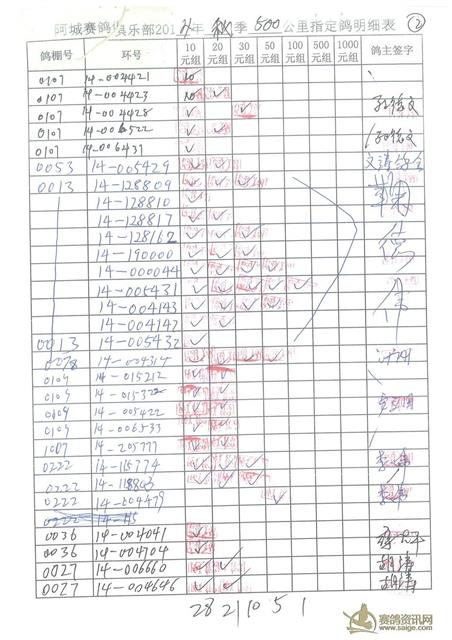 阿城赛鸽俱乐部2014年 秋季 500公里指定鸽明细表 ②
鸽棚号 环号 10元组 20元组 30元组 50元组 100元组 300元组 500元组 1000元组 鸽主签字
0107 14-004421 ✓
0107 14-004423 ✓ ✓
0107 14-004428 ✓ ✓
0107 14-006522 ✓ ✓
0107 14-006431 ✓
0053 14-005429
0013 14-128809 ✓ ✓ ✓
14-128810 ✓
14-128817 ✓ ✓
14-128162 ✓ ✓ ✓
14-190000 ✓ ✓ ✓
14-000044 ✓ ✓ ✓ ✓
14-005431 ✓ ✓ ✓ ✓ ✓
14-004143 ✓ ✓ ✓ ✓
14-004147 ✓ ✓
0013 14-005432
0278 14-004314 ✓ ✓ ✓ ✓
0109 14-015212 ✓ ✓
0109 14-015322 ✓ ✓
0109 14-005422 ✓ ✓
0109 14-006533 ✓ ✓
1007 14-205777 ✓ ✓
0222 14-115774 ✓ ✓ ✓
0222 14-118803 ✓ ✓ ✓
0222 14-004479 ✓
0036 14-004041 ✓
0036 14-004704 ✓
0027 14-006660 ✓ ✓
0027 14-004646 ✓ ✓
28 21 10 5 1
赛鸽资讯网
www.saige.com